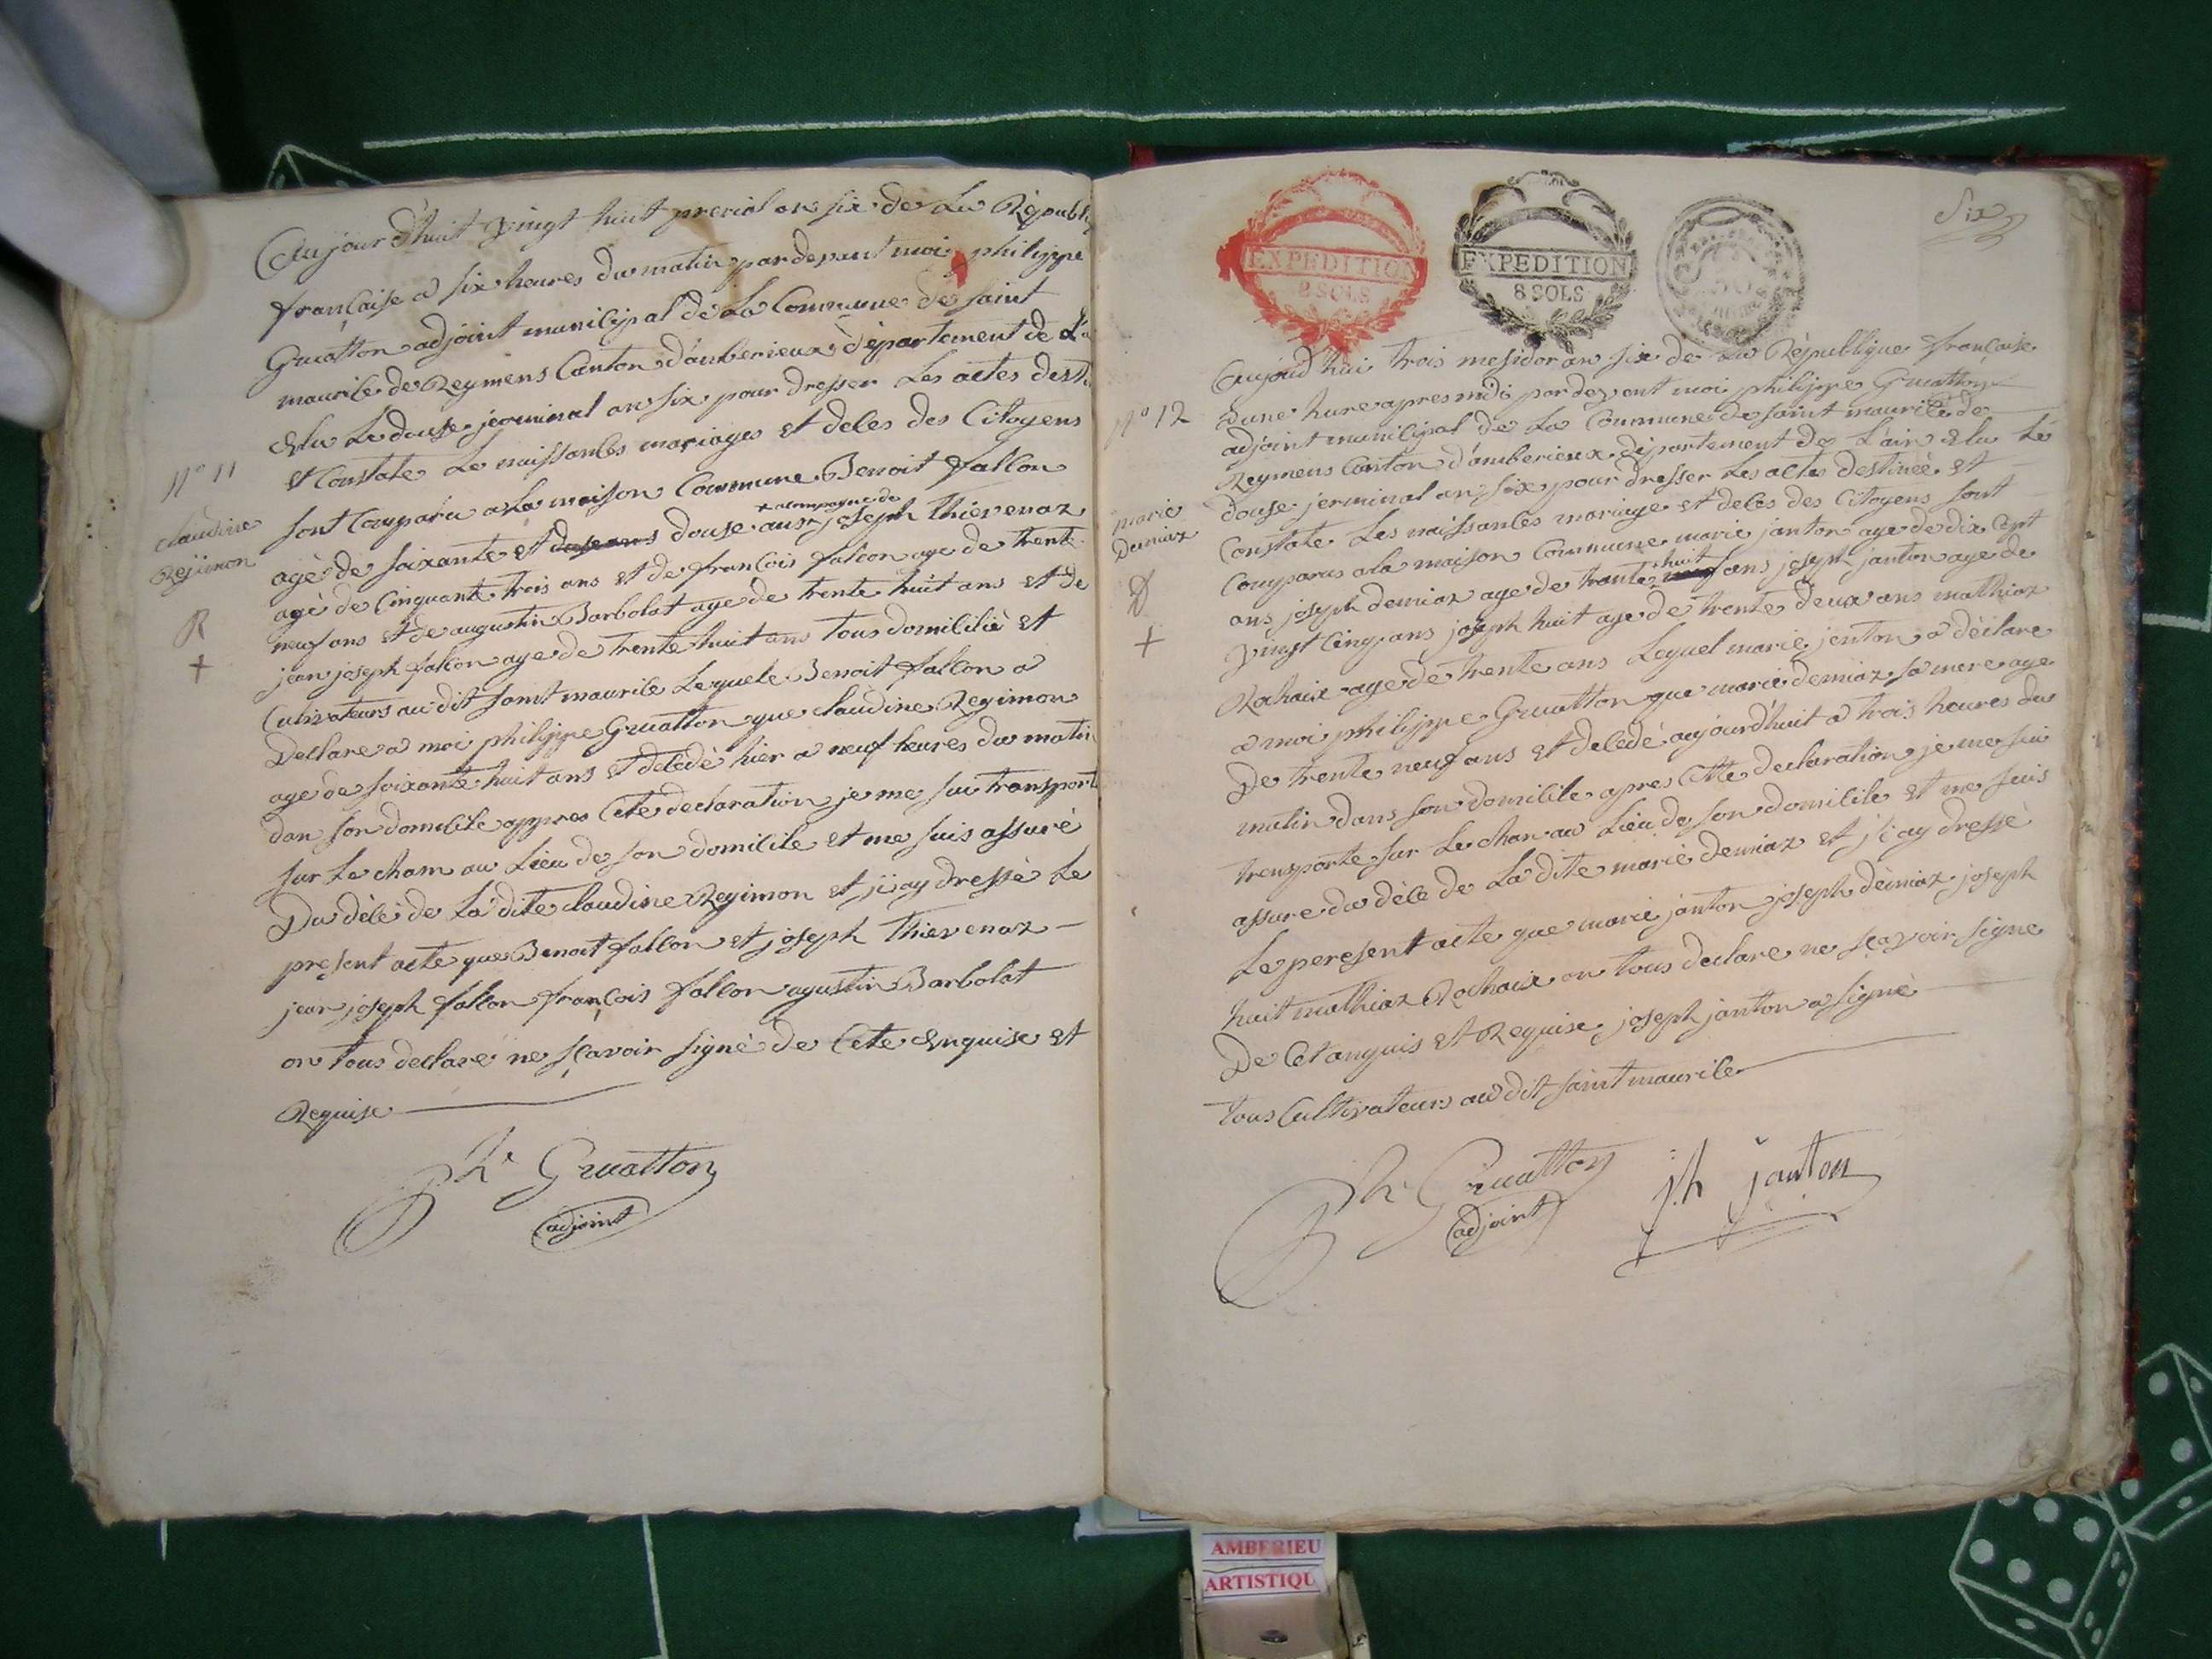 Aujourd'huit vingt huit prerial an six de La Républi
française a six heures du matin par devant moi philippe
Gruatton adjoint municipal de La Commune de saint
maurile de Reymens Canton d'amberieux département de L'a
Elu Le douse jerminal an six pour dresser Les actes dest
et Constate Le naissanles mariages et deles des Citoyens
N° 11
claudine
Rejimon
R
+
sont Comparu a La maison Commune Benoit fallon
agé de soixante et douse ans + acompagne de joseph thievenaz
agé de Cinquante trois ans et de francois falcon age de trente
neuf ans et de augustin Barbolat age de trente huit ans et de
jean joseph fallon age de trente huit ans tous domililié et
Cutivateurs au dit saint maurile Lequele Benoit fallon a
Declare a moi philippe Gruatton que claudine Regimon
age de soixante huit ans et deledé hier a neuf heures du matin
dan son domilile appres Cete declaration je me sui transport
sur Le cham au Lieu de son domilile et me suis assuré
Du délé de La dite claudine Regimon et j'i ay dressé Le
present acte que Benoit fallon et joseph Thievenaz
jean joseph fallon françois fallon agustin Barbolat
on tous declare ne sçavoir signé de Cete Enquise et
Requise
Ph^e Gruatton
adjoint
EXPEDITION
8 SOLS
EXPEDITION
8 SOLS
Six
Aujourd'hui trois mesidor an six de La République française
N° 12
d'une hure apres midi par devent moi philippe Gruatton
adjoint municipal de La Commune de saint maurile de
Reymens Canton d'amberieux département de L'ain Elu Le
marie
Demiaz
D
+
douse jerminal an six pour dresser Les actes destinée et
Constate Les naissanles mariage et deles des Citoyens sont
Comparus a la maison Commune marie janton age de dix Cept
ans joseph demiaz age de trante huit ans joseph janton age de
vingt Cinq ans joseph huit age de trente deux ans mathiaz
Rochaix age de trente ans Lequel marie jenton a déclare
a moi philippe Gruatton que marie demiaz sa mere age
De trente neuf ans et deledé aujourd'huit a trois heures du
matin dans son domilile apres Cette declaration je me sui
transporte sur Le chan au Lieu de son domilile et me suis
assure du déle de La dite marié demiaz et j'i ay dressé
Le peresent acte que marie janton joseph démiaz joseph
huit mathiaz Rochaix on tous declare ne sçavoir signe
De Cet anquis et Requise joseph janton a signé
tous Cultivateurs au dit saint maurile
Ph^e Gruatton
adjoint
j.h janton
AMBERIEU
ARTISTIQU